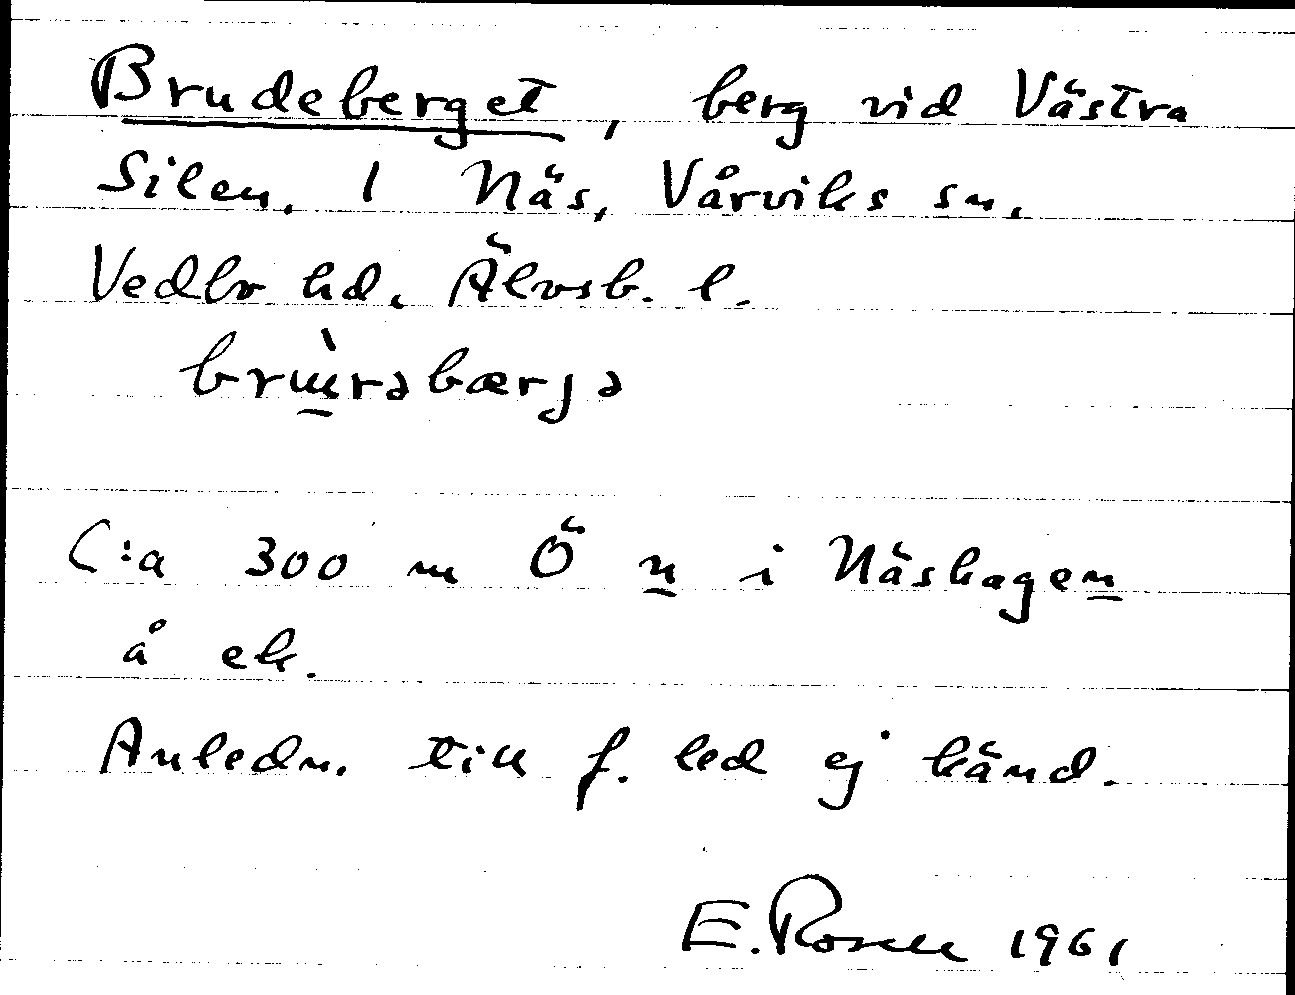 Brudeberget, berg vid Västra
Silen. 1 Näs, Vårviks sn.
Vedbo hd. Älvsb. l.
brɯ̀rəbærjə
C:a 300 m Ö n i Näshagen
å ek.
Anledn. till f. led ej känd.
E. Rosell 1961